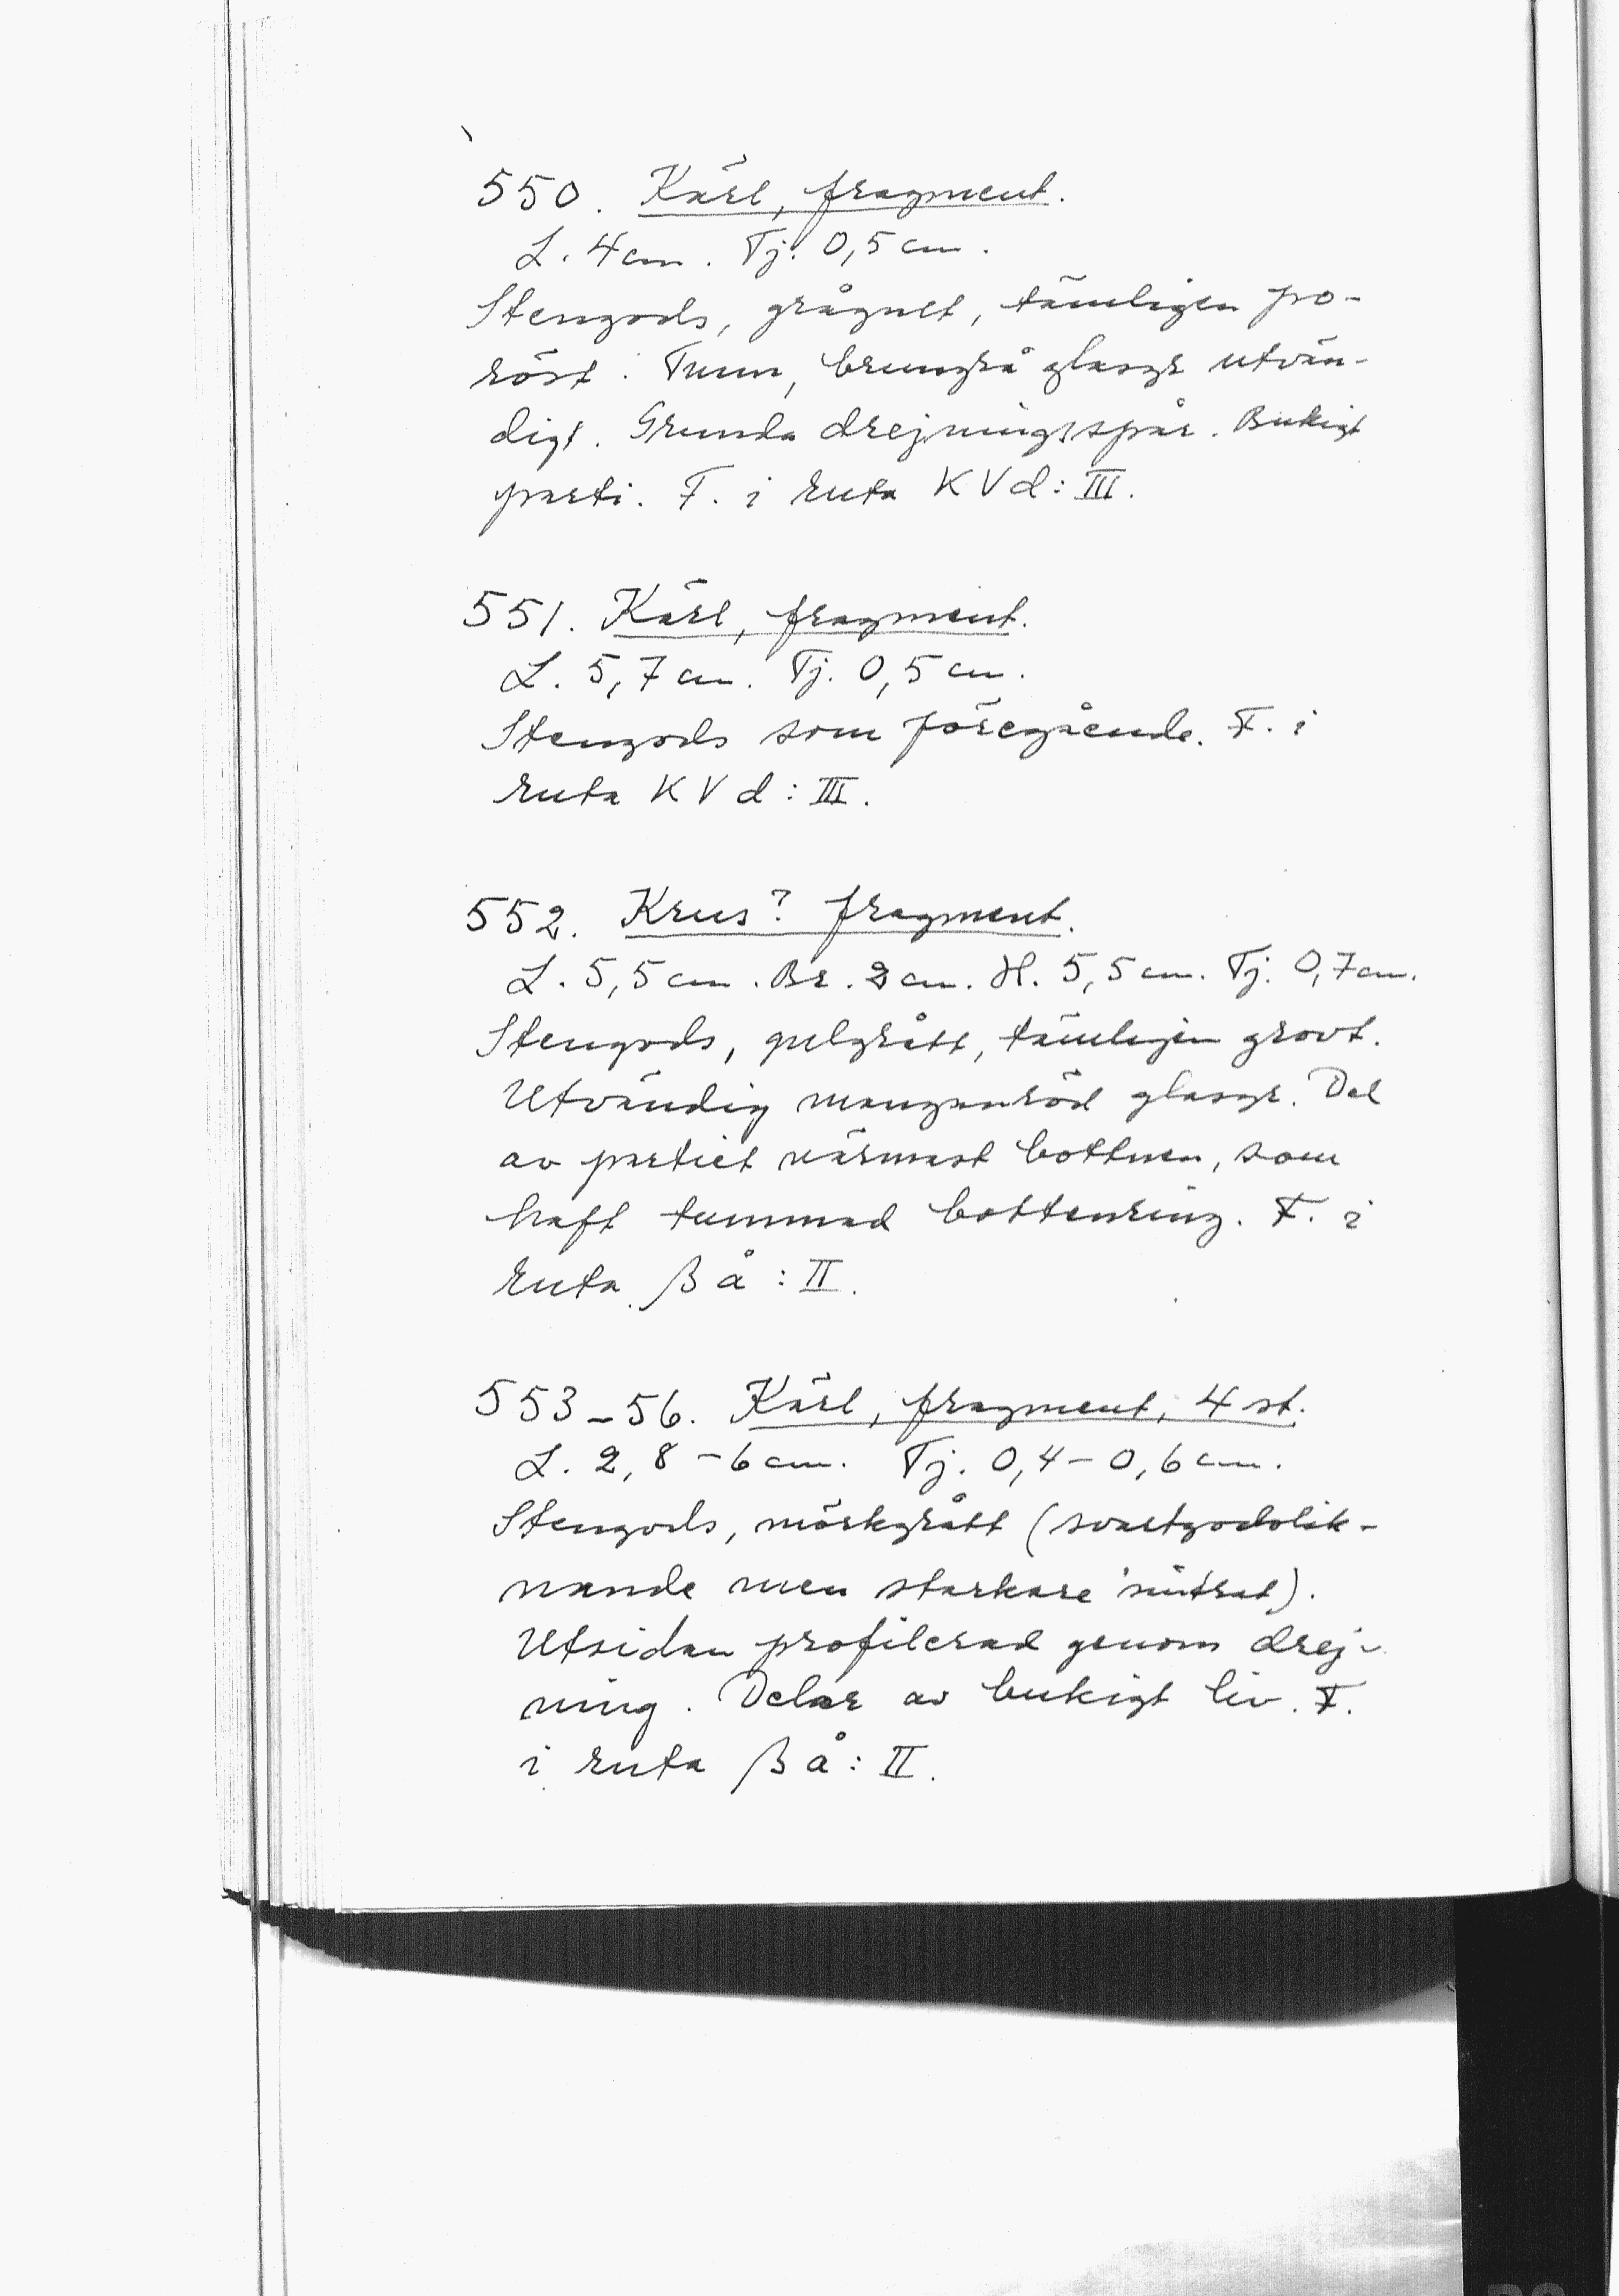 550. Kärl, fragment.
L. 4 cm. Tj. 0,5 cm.
Stengods, grågult, tämligen po-
röst. Tunn, brungrå glasyr utvän-
digt. Grunda drejningsspår. Bukigt
parti. F. i ruta KVd: III.
551. Kärl, fragment.
L. 5,7 cm. Tj. 0,5 cm.
Stengods som föregående. F. i
ruta KVd: III.
552. Krus? fragment.
L. 5,5 cm. Br. 2 cm. H. 5,5 cm. Tj. 0,7 cm.
Stengods, gulgrått, tämligen grovt.
Utvändig manganröd glasyr. Del
av partiet närmast bottnen, som
haft tummad bottenring. F. i
ruta ßå: II.
553-56. Kärl, fragment, 4 st.
L. 2,8-6 cm. Tj. 0,4-0,6 cm.
Stengods, mörkgrått (svartgodslik-
nande men starkare sintrat).
Utsidan profilerad genom drej-
ning. Delar av bukigt liv. F.
i ruta ßå: II.